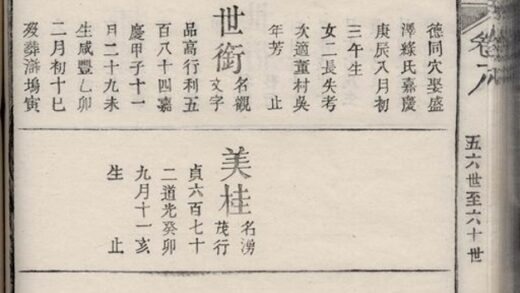 卷八
五六世至六十世
德同穴娶盛
澤氏嘉慶
庚辰八月初
三午生
女二長失考
次適童村吳
年芳 止
世銜 名觀
文字
品高行利五
百八十四嘉
慶甲子十一
月二十九未
生咸豐乙卯
二月初十巳
歿葬滸塢寅
美桂 名湧
茂行
貞六百七十
二道光癸卯
九月十一亥
生 止